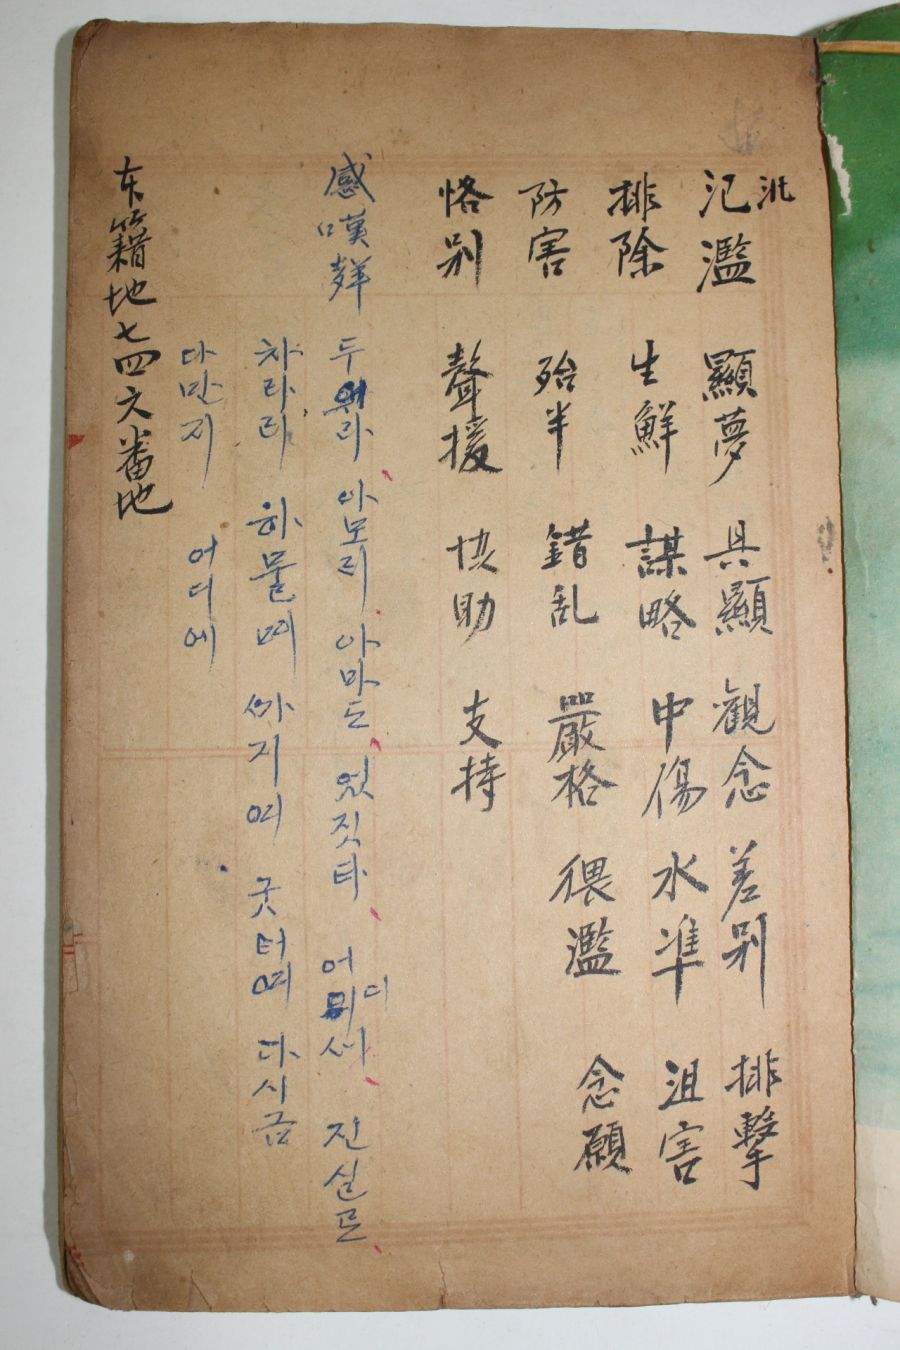 氾濫 顯夢 具顯 観念 差別 排擊
排除 生鮮 謀略 中傷 水準 沮害
防害 殆半 錯乱 嚴格 猥濫 念願
恪別 聲援 協助 支持
感嘆 아모리 아마도 엇짓타 어디 진실로
차라리 하물며 까지여 굿터여 다시금
다만지 어디에
本籍地七四六番地